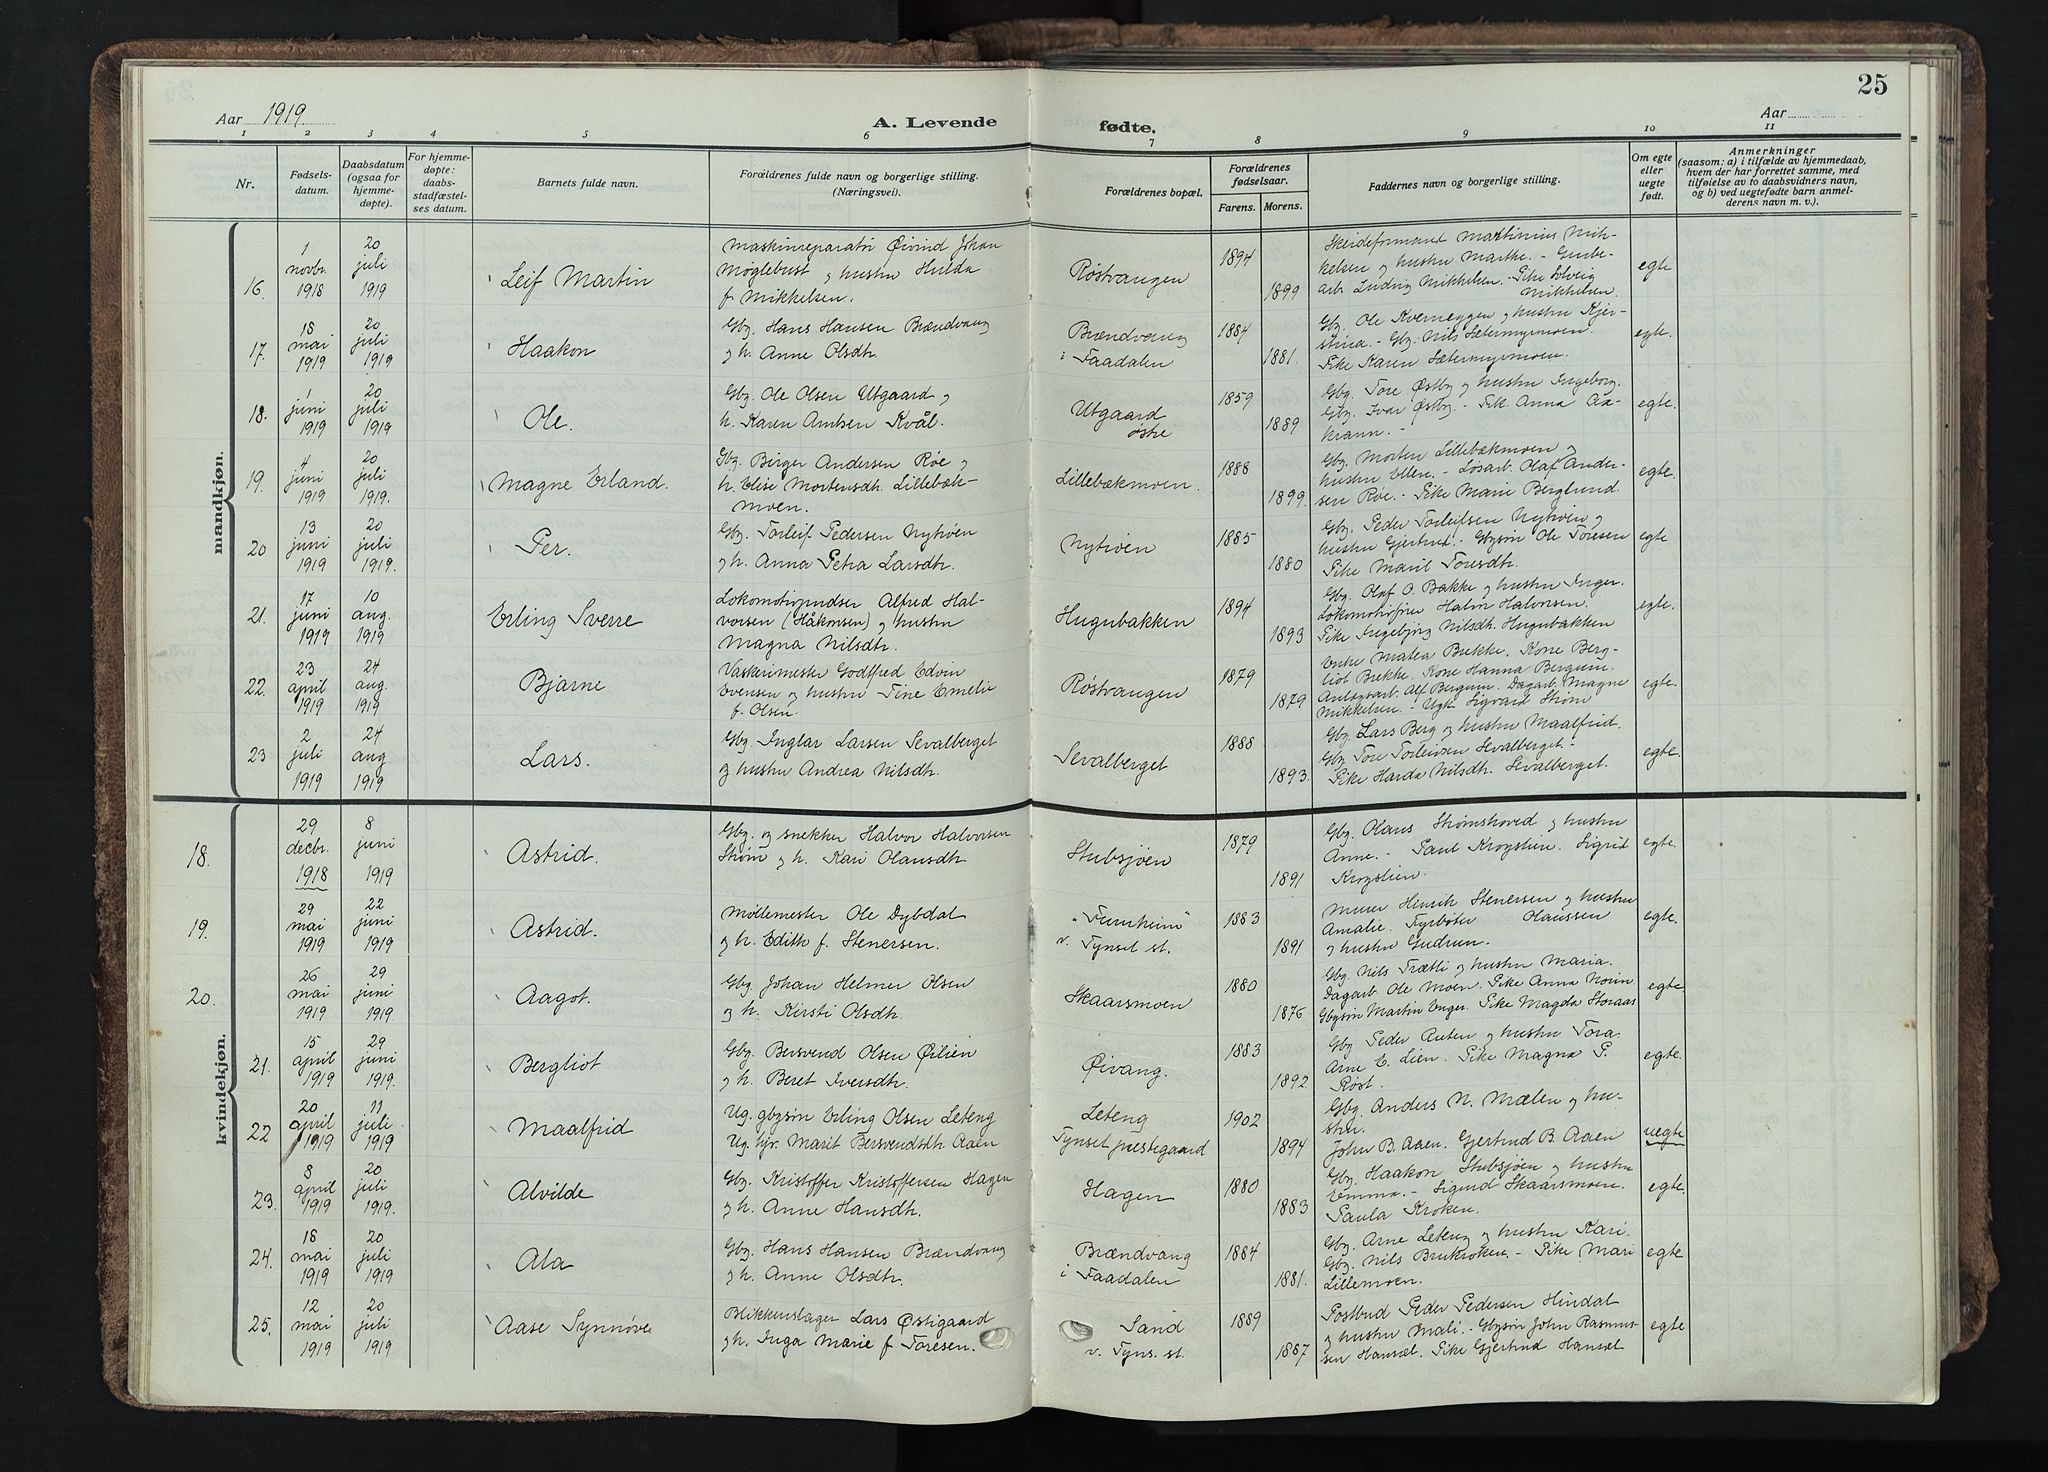 25
Aar 1919
A. Levende fødte.
Aar
1 2 3 4 5 6 7 8 9 10 11
Nr.
Fødsels-
datum.
Daabsdatum
(ogsaa for
hjemme-
døpte).
For hjemme-
døpte:
daabs-
stadfæstel-
ses datum.
Barnets fulde navn.
Forældrenes fulde navn og borgerlige stilling.
(Næringsvei).
Forældrenes bopæl.
Forældrenes
fødselsaar.
Farens. Morens.
Faddernes navn og borgerlige stilling.
Om egte
eller
uegte
født.
Anmerkninger
(saasom: a) i tilfælde av hjemmedaab,
hvem der har forrettet samme, med
tilføielse av to daabsvidners navn,
og b) ved uegtefødte barn anmel-
derens navn m. v.).
mandkjøn.
16.
1
novbr.
1918
20
juli
1919
Leif Martin
Maskinreparatør Øivind Johan
Møglebust og hustru Hulda
f. Mikkelsen.
Røstvangen
1894
1899
Skeideformand Martinius Mik-
kelsen og hustru Marthe. - Grube-
arb. Ludvig Mikkelsen. Pike Solveig
Mikkelsen.
egte
17.
18
mai
1919
20
juli
1919
Haakon
Gbr. Hans Hansen Brændvang
og h. Anne Olsdtr.
Brændvang
i Faadalen
1884
1881.
Gbr. Ole Kverneggen og hustru Kjer-
stina. - Gbr. Nils Sætermyrmoen.
Pike Karen Sætermyrmoen.
egte.
18.
1
juni
1919
20
juli
1919
Ole.
Gbr. Ole Olsen Utgaard og
h. Karen Arntsen Kvål.
Utgaard
østre
1859
1889
Gbr. Tore Østby og hustru Ingeborg.
Gbr. Ivar Østby. - Pike Anna Aa-
krann. -
egte.
19.
4
juni
1919
20
juli
1919.
Magne Erland.
Gbr. Birger Andersen Røe og
h. Elise Mortensdtr. Lillebæk-
moen.
Lillebækmoen.
1888
1899.
Gbr. Morten Lillebækmoen og
hustru Ellen. - Løsarb. Olaf Ander-
sen Røe. - Pike Marie Berglund.
egte.
20
13
juni
1919
20
juli
1919.
Per.
Gbr. Torleif Pedersen Nytrøen
og h. Anna Petra Larsdtr.
Nytrøen
1885
1880
Gbr. Peder Torleifsen Nytrøen og
hustru Gjertrud. - Gbrsøn Ole Toresen
Pike Marit Toresdtr.
egte
21.
17
juni
1919
10
aug.
1919
Erling Sverre
Lokomotivpudser Alfred Hal-
vorsen (Håkonsen) og hustru
Magna Nilsdtr.
Hugubakken
1894
1893
Gbr. Olaf O. Bakke og hustru Inger.
Lokomotivfører Halvor Halvorsen.
Pike Ingebjørg Nilsdtr. Hugubakken
egte.
22.
23
april
1919
24
aug.
1919
Bjarne
Vaskerimester Godtfred Edvin
Evensen og hustru Tine Emelie
f. Olsen.
Røstvangen
1879
1879
Enke Matea Brekke. Kone Berg-
liot Brekke. Kone Hanna Bergum.
Anlægsarb. Alf Bergum. Dagarb. Magne
Mikkelsen. - Ugk. Sigvard Strøm
egte.
23
2
juli
1919
24
aug
1919
Lars.
Gbr. Inglar Larsen Sevalberget
og hustru Andrea Nilsdtr.
Sevalberget
1888
1893.
Gbr. Lars Berg og hustru Maalfrid.
Gbr. Tore Torleivsen Sevalberget -
Pike Harda Nilsdtr. Sevalberget.
egte.
kvindekjøn.
18.
29
decbr.
1918
8
juni
1919
Astrid.
Gbr. og snekker Halvor Halvorsen
Strøm og h. Kari Olausdtr.
Stubsjøen
1879
1891
Gbr. Olaus Strømshoved og hustru
Anne. - Paul Krogstien. Sigrid
Krogstien.
egte.
19.
29
mai
1919
22
juni
1919
Astrid.
Møllemester Ole Dybdal
og h. Edith f. Stenersen.
"Furuheim"
v. Tynset st.
1883
1891
Murer Henrik Stenersen og hustru
Amalie. Fyrbøter Olaussen
og hustru Gudrun.
egte.
20.
26
mai
1919
29
juni
1919
Aagot.
Gbr. Johan Helmer Olsen
og h. Kirsti Olsdtr.
Skaarsmoen
1880
1876
Gbr. Nils Trætli og hustru Maria.
Dagarb. Ole Moen. Pike Anna Moen
Gbrsøn Martin Unger. Pike Magda Storaas
egte.
21.
15
april
1919
29
juni
1919.
Bergliot
Gbr. Bersvend Olsen Øilien
og h. Beret Iversdtr.
Øivang.
1883
1892
Gbr Peder Auten og hustru Tora.
Arne E. Lien. Pike Magna P.
Røst.
egte.
22
20
april
1919
11
juli
1919
Maalfrid
Ug. gbrsøn Erling Olsen Leteng
Ug. hjr. Marit Bersvendsdtr. Aaen
Leteng
Tynset prestegaard
1902
1894
Gbr. Anders N. Mælen og hu-
stru.
John B. Aaen. Gjertrud B. Aaen
uegte
23.
8
april
1919
20
juli
1919.
Alvilde
Gbr. Kristoffer Kristoffersen Hagen
og h. Anne Hansdtr.
Hagen
1880
1883
Gbr. Haakon Stubsjøen og hustru
Emma. - Sigurd Skaarsmoen.
Paula Kroken.
egte.
24.
18
mai
1919
20
juli
1919
Ala
Gbr. Hans Hansen Brændvang
og h. Anne Olsdtr.
Brændvang
i Faadalen
1884
1881.
Gbr. Arne Leteng og hustru Kari.
Gbr. Nils Brukroken. - Pike Mari
Lillemoen.
egte
25.
12
mai
1919
20
juli
1919
Aase Synnøve
Blikkenslager Lars Østigaard
og h. Inga Marie f. Toresen.
Sand
v. Tyns. st.
1889
1887
Postbud Peder Pedersen Hindal
og hustru Mali. Gbrsøn John Rasmus-
sen Hansæl. Pike Gjertrud Hansæl
egte